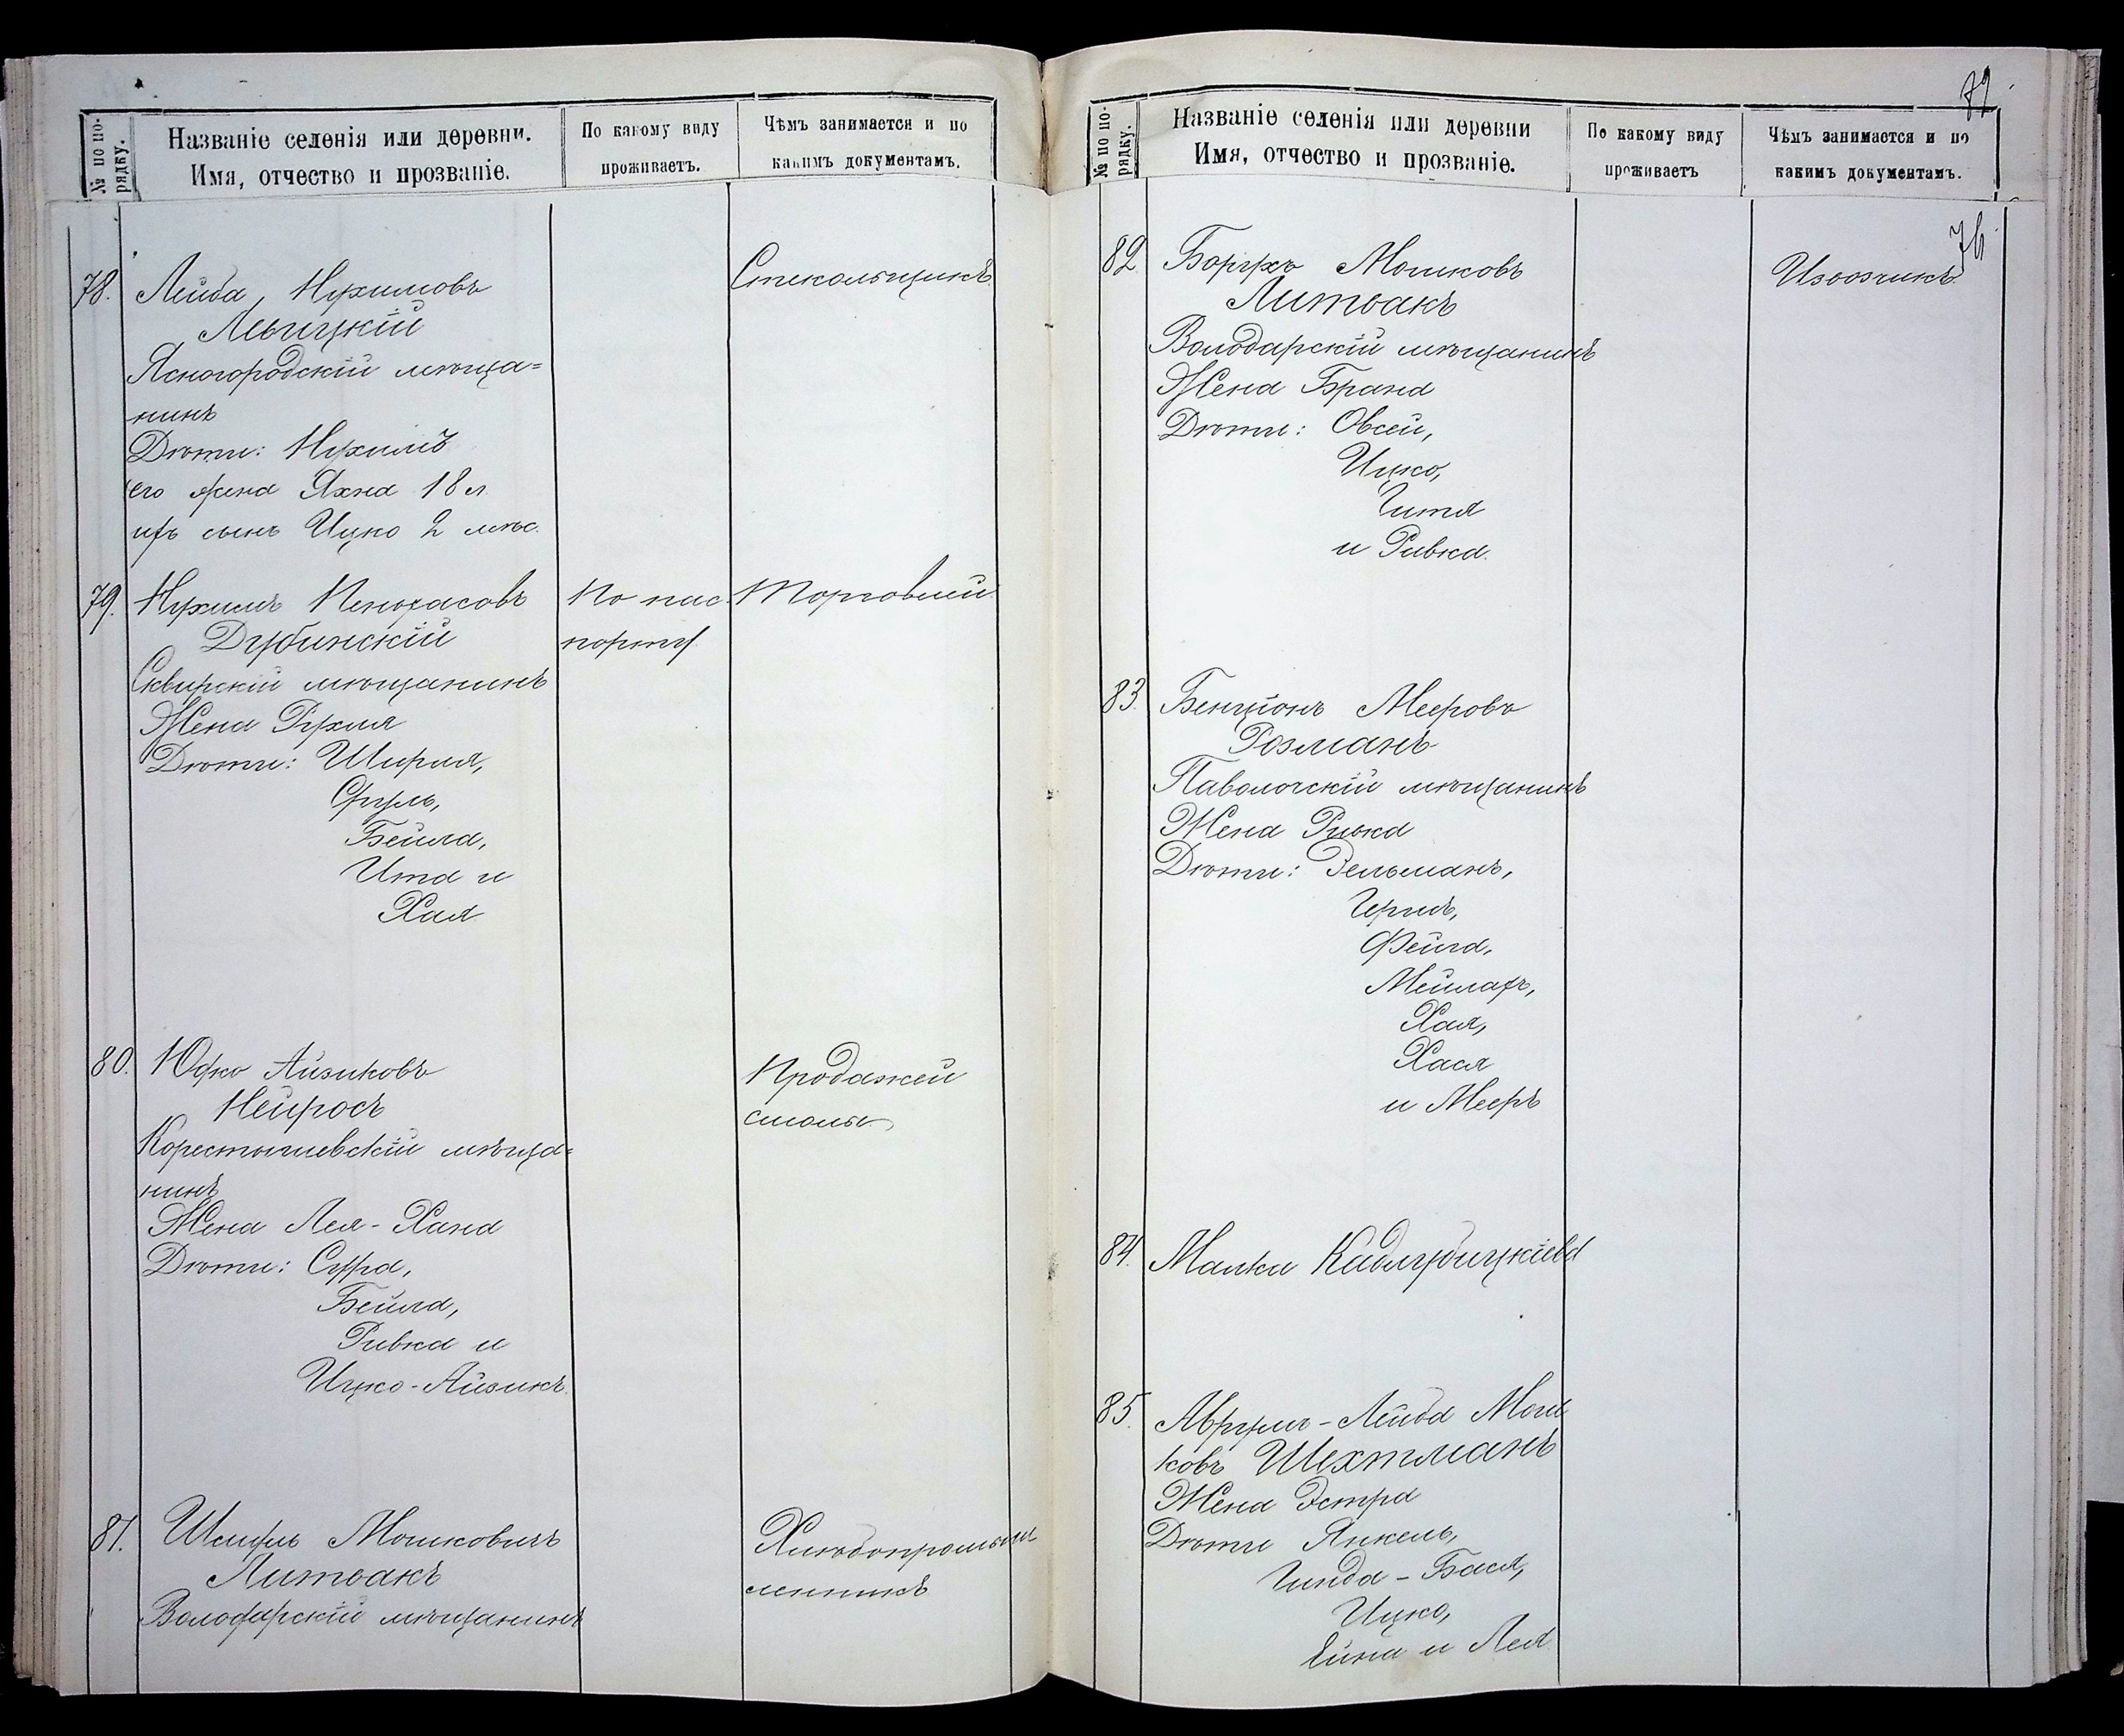 № по по-
рядку.
Названіе селенія или деревни.
Имя, отчество и прозваніе.
По какому виду
проживаетъ.
Чѣмъ занимается и по
какимъ документамъ.
78.
Лейба Нухимовъ
Стекольщикъ
Ясногородскій мѣща=
нинъ
Дѣти: Нухимъ
его жена Яхна 18 л.
ихъ сынъ Ицко 2 мѣс.
79.
Нухимъ Пенхасовъ
Дубинскій
По пас
порту
Торговлей
Сквирскій мѣщанинъ
Жена Рухля
Дѣти:
Сруль,
Бейла,
Ита и
Хая
80.
Юдко Айзиковъ
Продажей
смолы
Коростышевскій мѣща=
нинъ
Жена Лея-Хана
Дѣти: Сура,
Бейла,
Ривка и
Ицко-Айзикъ.
81.
Шмуль Мошковичъ
Литвакъ
Хлѣбопромыш
ленникъ
Володарскій мѣщанинъ
№ по по-
рядку.
Названіе селенія или деревни
Имя, отчество и прозваніе.
По какому виду
проживаетъ
Чѣмъ занимается и по
какимъ документамъ.
76
82.
Борухъ Мошковъ
Литвакъ
Извозчикъ.
Володарскій мѣщанинъ
Жена Брана
Дѣти: Овсей,
Ицко,
Гитя
и Ривка.
83.
Бенціонъ Мееровъ
Розманъ
Паволочскій мѣщанинъ
Жена Ривка
Дѣти: Зельманъ,
Фейга,
Мейлахъ,
Хая,
Хася
и Мееръ
84.
Малка
85.
Аврумъ-Лейба Мош
ковъ Шехтманъ
Жена Эстра
Дѣти Янкель,
Гинда-Бася,
Ицко,
и Лея